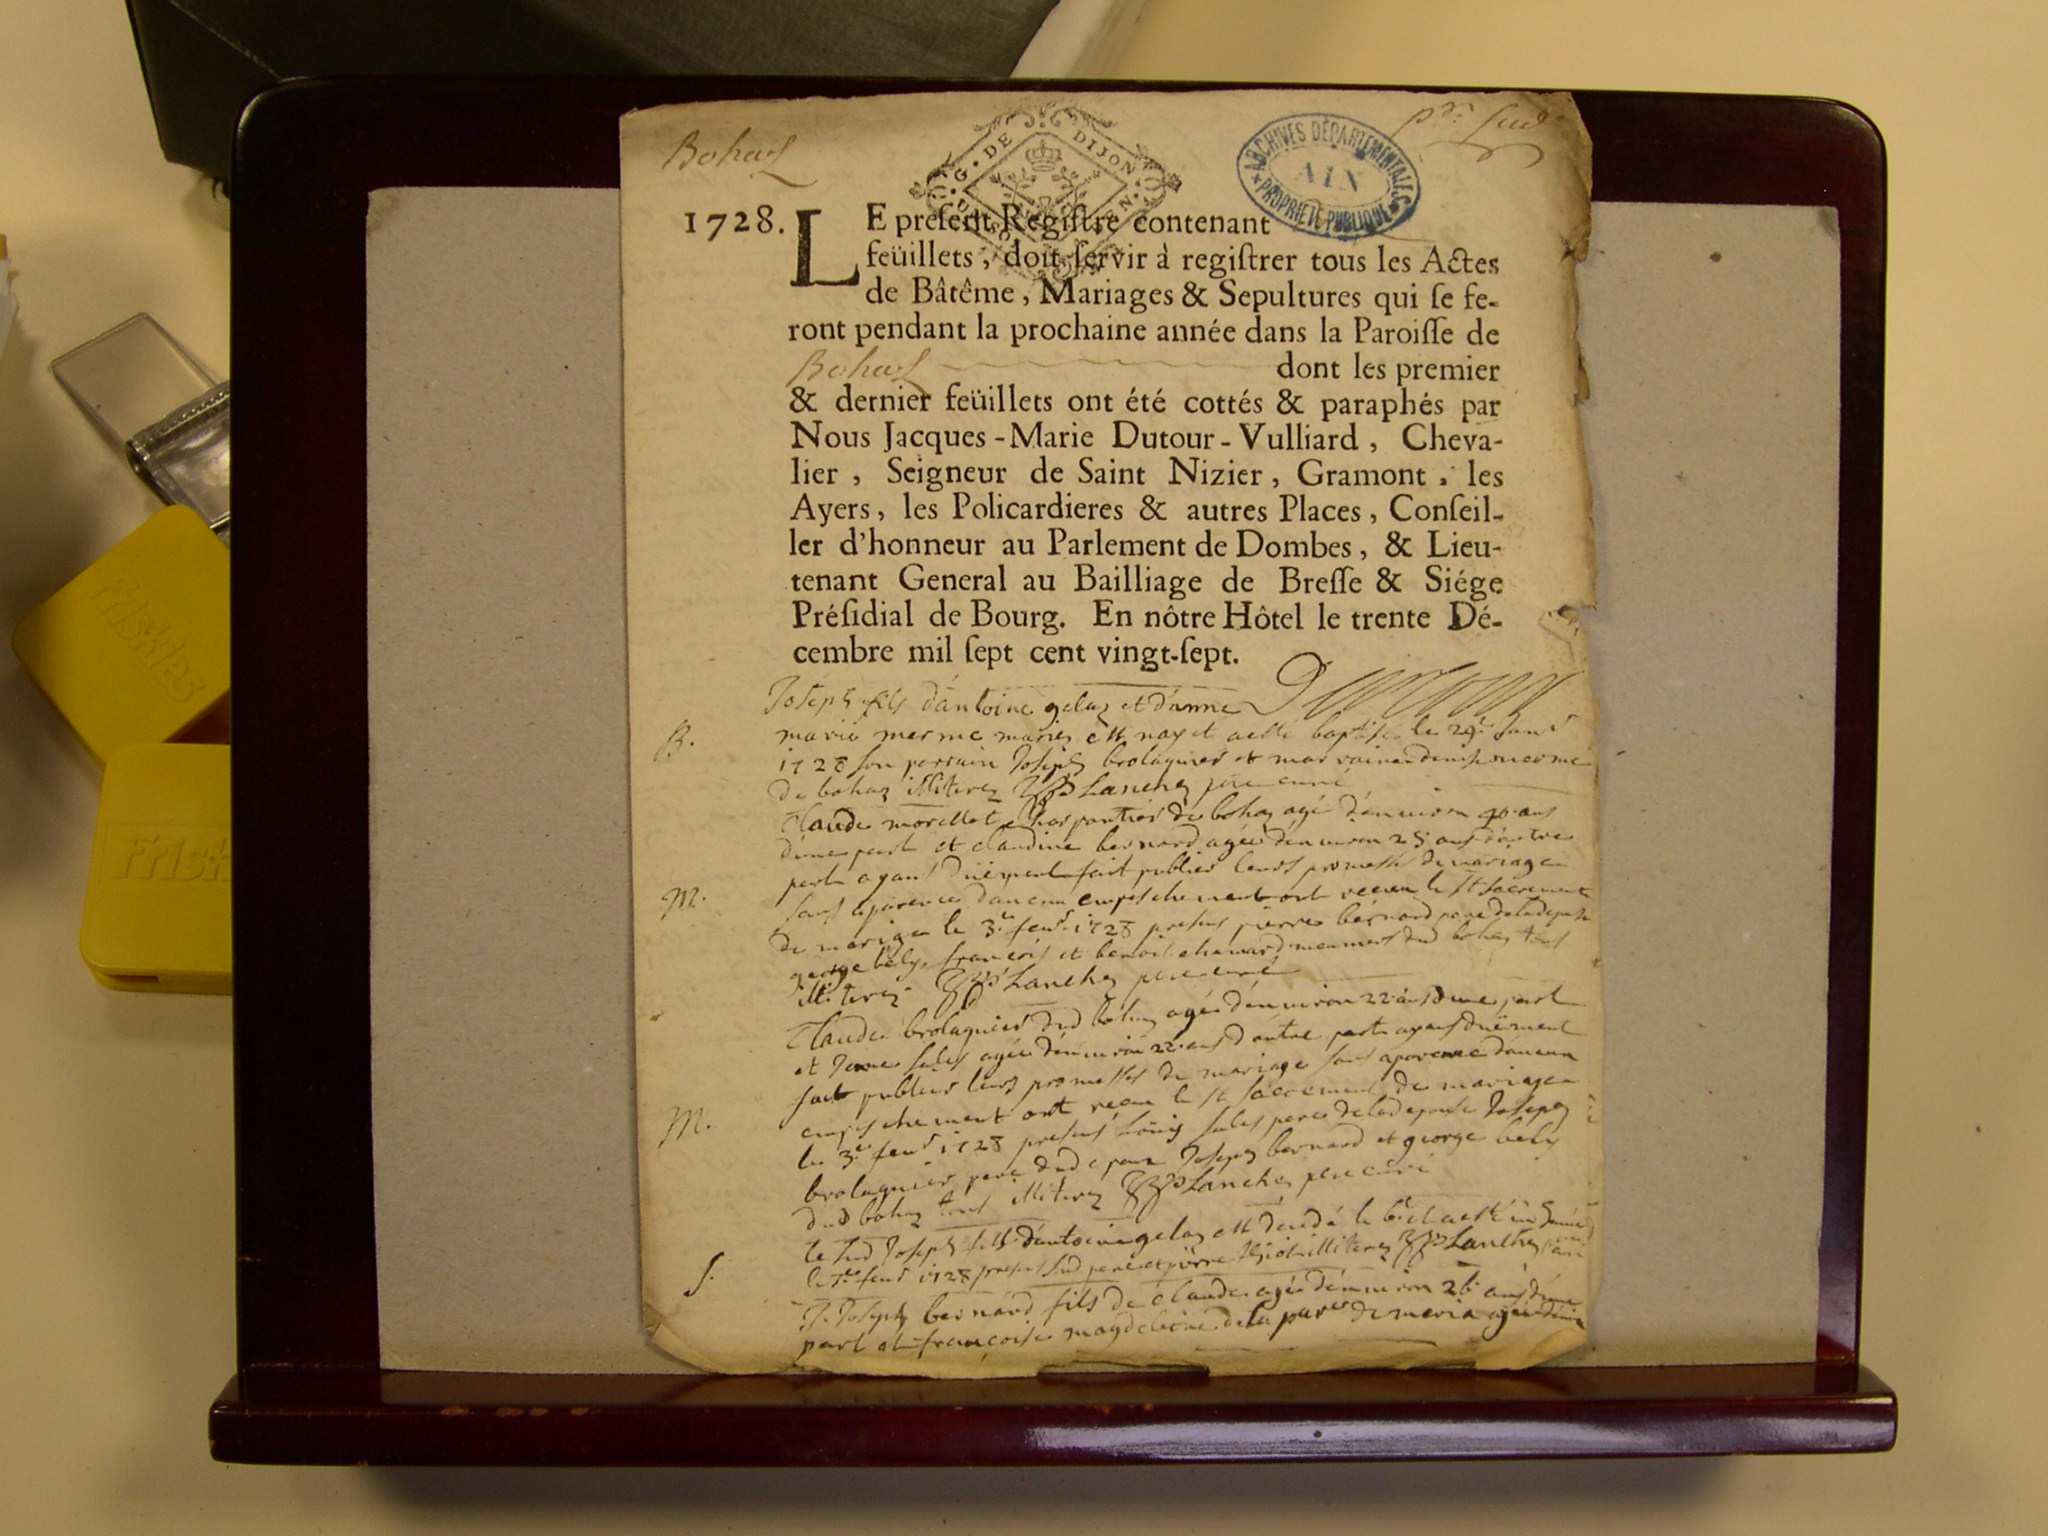 Bohas
pr. feud
G. DE DIJON
ARCHIVES DÉPARTEMENTALES
AIN
PROPRIÉTÉ PUBLIQUE
1728. LE preſent Regiſtre contenant
feüillets, doit ſervir à regiſtrer tous les Actes
de Bâtême, Mariages & Sepultures qui ſe fe-
ront pendant la prochaine année dans la Paroiſſe de
Bohas dont les premier
& dernier feüillets ont été cottés & paraphés par
Nous Jacques-Marie Dutour-Vulliard, Cheva-
lier, Seigneur de Saint Nizier, Gramont, les
Ayers, les Policardieres & autres Places, Conſeil-
ler d'honneur au Parlement de Dombes, & Lieu-
tenant General au Bailliage de Breſſe & Siége
Préſidial de Bourg. En nôtre Hôtel le trente Dé-
cembre mil ſept cent vingt-ſept.
Joseph fils d'antoine gelaz et d'anne
B. marie merme mariez est nay et a esté baptisé le 29e Janr
1728 son parrain Joseph brolaquier et marraine merme
de bohaz illiterez Lanchez curé
Claude morellet charpentier de bohaz agé d'environ 40 ans
d'une part et claudine bernard agée d'environ 25 ans d'autre
part ayant düement fait publier leurs promesses de mariage
M. sans aparence d'aucun empeschement ont receu le St Sacrement
de mariage le 3e feur 1728 presens pierre bernard pere de ladte
george bely, françois et benoit dud bohaz tous
illiterez Lanchez curé
Claude brolaquier dud bohaz agé d'environ 22 ans d'une part
et sales agée d'environ 22 ans d'autre part ayans düement
fait publier leurs promesses de mariage sans aparence d'aucun
empeschement ont receu le St Sacrement de mariage
M. le 3e feur 1728 presens Loüis sales pere de lad epouse Joseph
brolaquier pere dud epoux Joseph bernard et george bely
dud bohaz tous illiterez Lanchez curé
le sud Joseph fils d'antoine gelaz est decedé le 6e et a esté
S. le 7e feur 1728 presens sud pere et pierre illiterez Lanchez
Joseph bernard fils de claude agé d'environ 26 ans d'une
part et françoise magdeleine de la paresse de agée
Friskies
Frisk